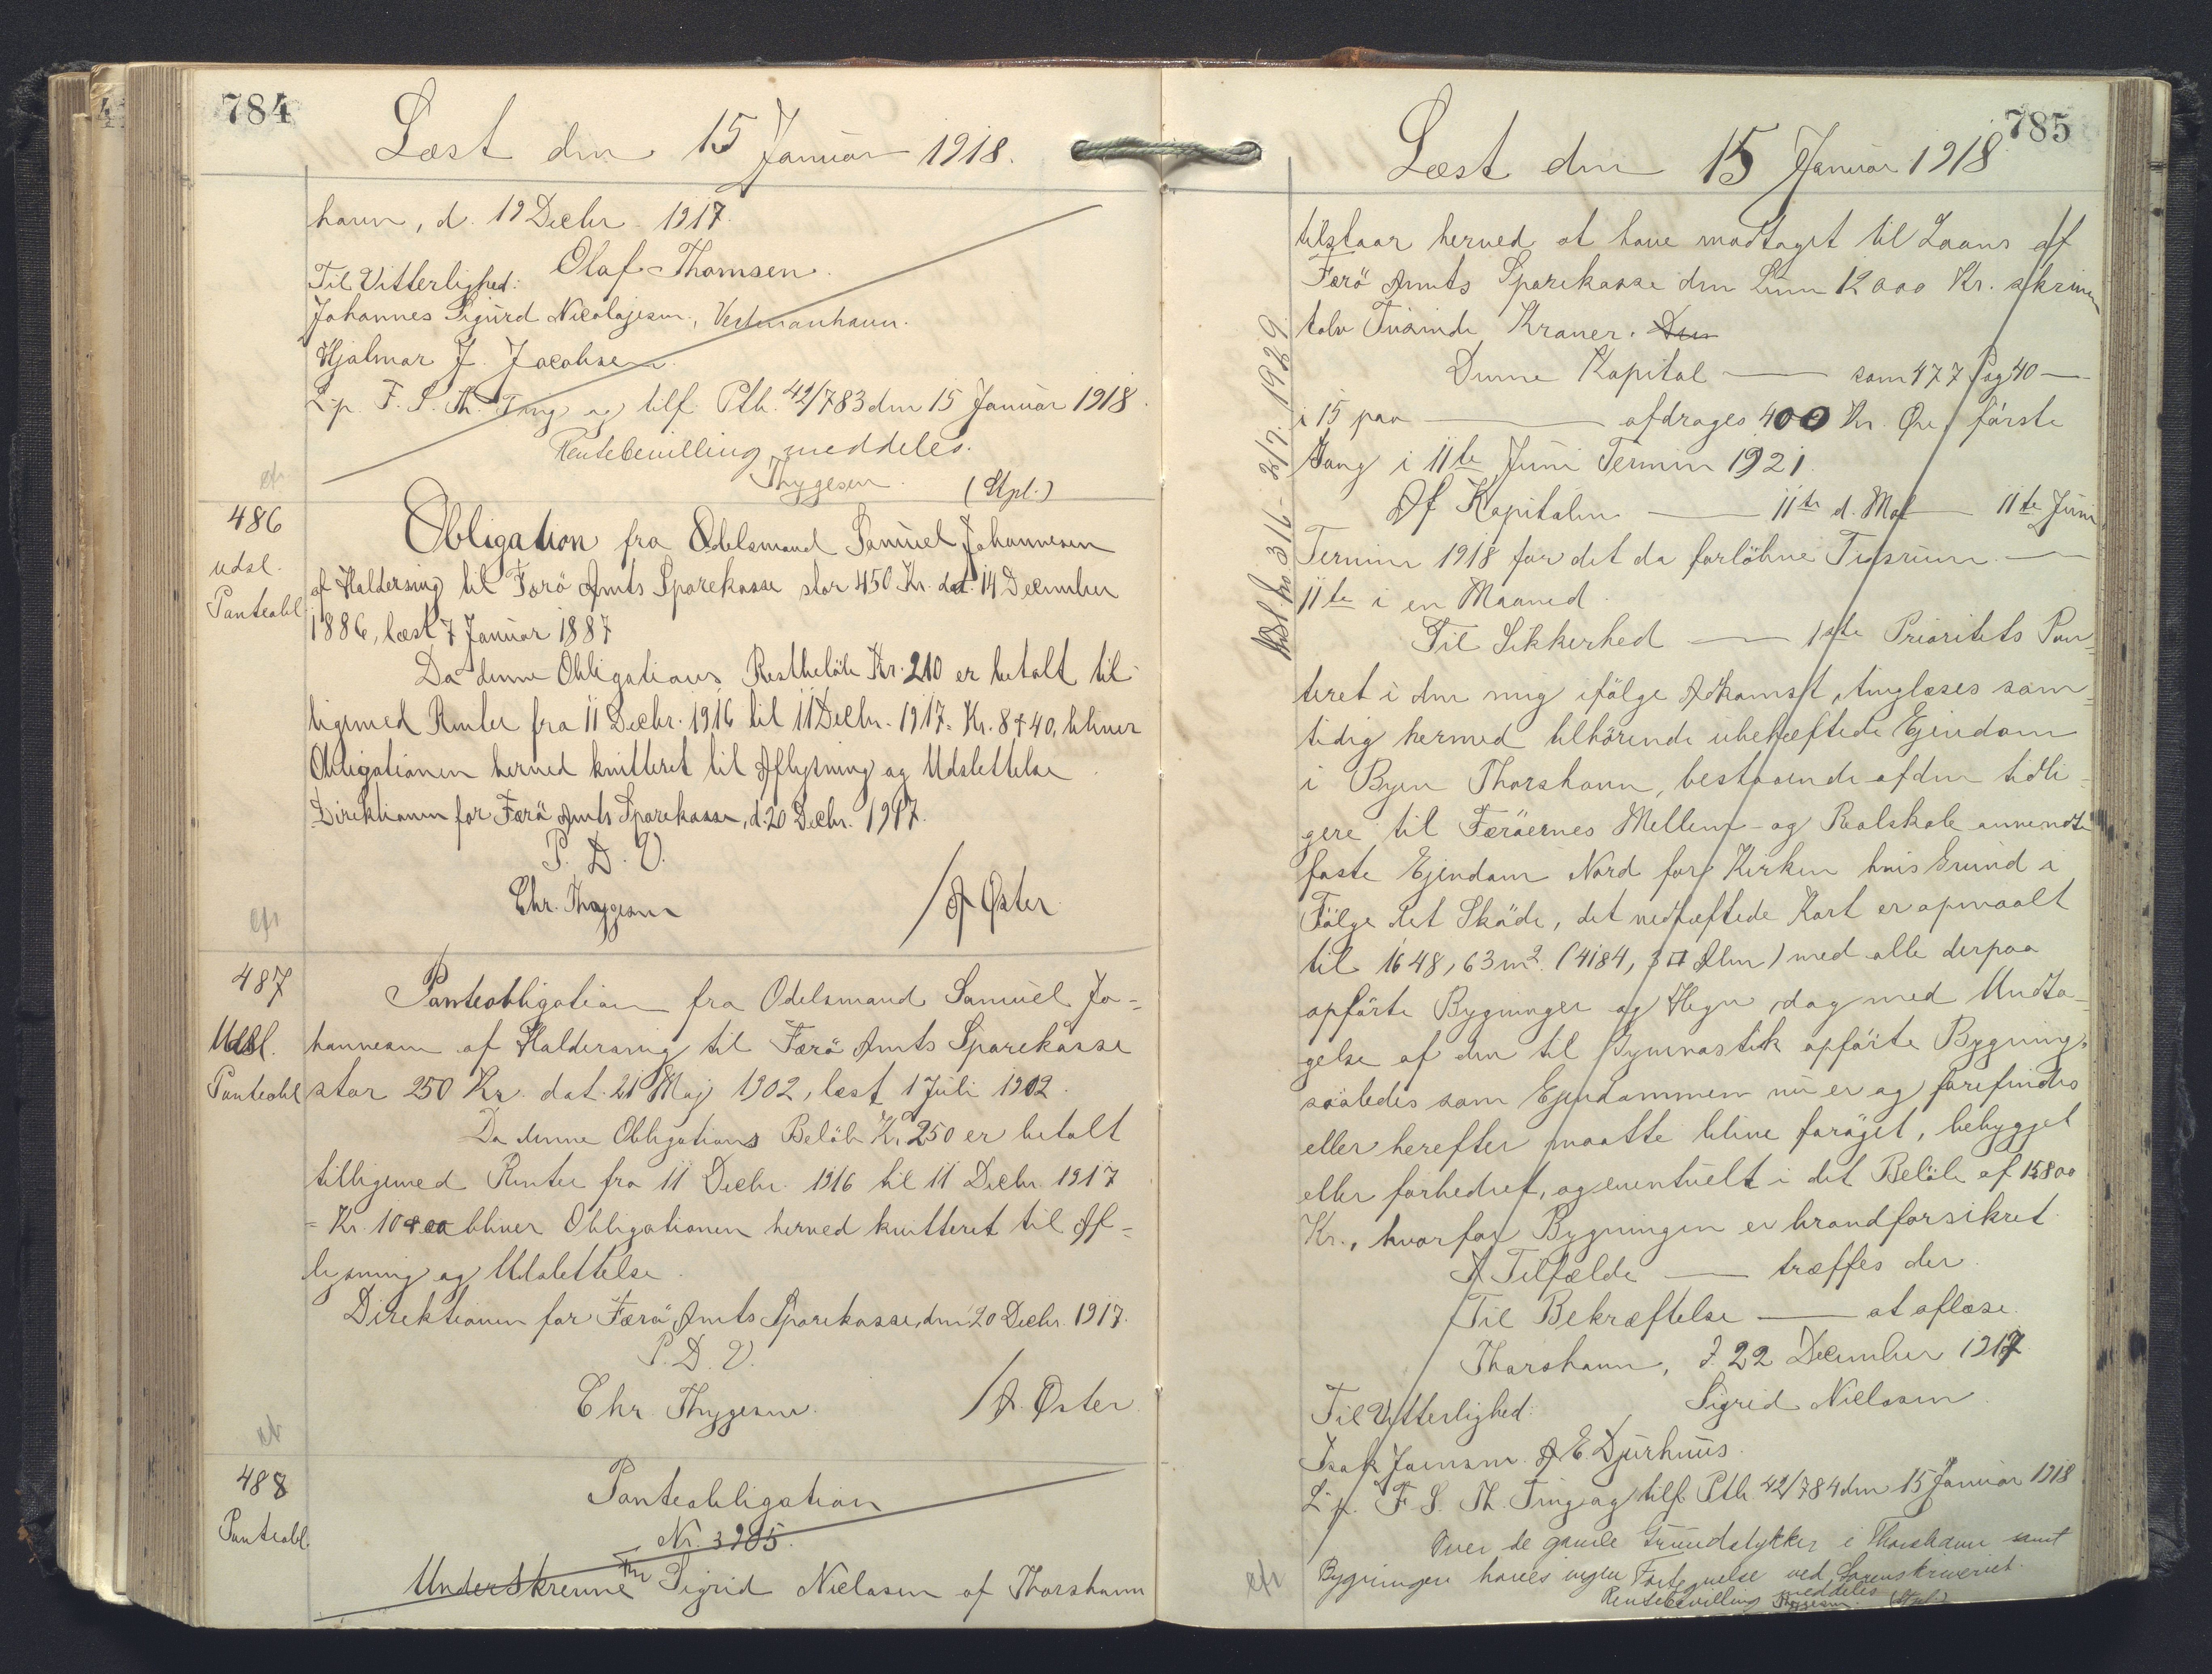 784
Læst den 15 Januar 1918.
havn, d. 19 Decbr. 1917.
Olaf Thomsen.
Til Vitterlighed:
Johannes Sigurd Nicolajsen, Vestmanhavn.
Hjalmar J. Jacobsen
L. p. F. S. Th. Ting og tilf. Ptb. 42/783 den 15 Januar 1918.
Rentebevilling meddeles.
Thygesen. (Stpl.)
486
udsl.
Panteobl
Obligation fra Odelsmand Samuel Johannesen
af Haldersvig til Færö Amts Sparekasse stor 450 Kr. dat. 14 December
1886, læst 7 Januar 1887
Da denne Obligations Restbelöb Kr. 210 er betalt til-
ligemed Renter fra 11 Decbr. 1916 til 11 Decbr. 1917 = Kr. 8+40, bliver
Obligationen herved kvitteret til Aflysning og Udslettelse.
Direktionen for Færö Amts Sparekasse, d. 20 Decbr. 1917.
P. D. V.
Chr. Thygesen / A Øster
487
Udsl.
Panteobl
Panteobligation fra Odelsmand Samuel Jo-
hannesen af Haldersvig til Færö Amts Sparekasse
stor 250 Kr. dat. 21 Maj 1902, læst 1 Juli 1902.
Da denne Obligations Belöb Kr. 250 er betalt
tilligemed Renter fra 11 Decbr. 1916 til 11 Decbr. 1917
= Kr. 10+00 bliver Obligationen herved kvitteret til Af-
lysning og Udslettelse.
Direktionen for Færö Amts Sparekasse, den 20 Decbr. 1917.
P. D. V.
Chr. Thygesen. / A. Øster.
488
Panteobl.
Panteobligation
Nr. 3905.
Underskrevne Frk Sigrid Nielsen af Thorshavn
785
Læst den 15 Januar 1918
tilstaar herved at have modtaget til Laans af
Færö Amts Sparekasse den Sum 12000 Kr. skriver
tolv Tusinde Kroner. Den
Denne Kapital — som 477 pag 40 —
i 15 paa — afdrages 400 Kr. Øre første
Gang i 11te Juni Termin 1921.
Af Kapitalen — 11te d. Md — 11te Juni
Termin 1918 for det da forløbne Tidsrum —
11te i en Maaned.
Til Sikkerhed — 1ste Prioritets Pan-
teret i den mig ifölge Adkomst, tinglæses sam-
tidig hermed tilhörende ubehæftede Ejendom
i Byen Thorshavn, bestaaende af den tidli-
gere til Færöernes Mellem- og Realskole anvendte
faste Ejendom Nord for Kirken hvis Grund i
Fölge det Sköde, det vedhæftede Kort er opmaalt
til 1648,63 m2. (4184,3 □ Alen) med alle derpaa
opförte Bygninger og Hegn, dog med Undta-
gelse af den til Gymnastik opförte Bygning,
saaledes som Ejendommen nu er og forefindes
eller herefter maatte blive forøget, bebygget
eller forbedret, og eventuelt i det Belöb af 15800
Kr., hvorfor Bygningen er brandforsikret.
I Tilfælde — træffes der.
Til Bekræftelse — at aflæse.
Thorshavn, d. 22 December 1917.
Sigrid Nielsen
Til Vitterlighed:
Isak Joensen. A E Djurhuus.
L. p. F. S. Th. Ting og tilf. Ptb. 42/784 den 15 Januar 1918
Over de gamle Grundstykker i Thorshavn samt
Bygningen haves ingen Fortegnelse ved Sorenskriveriet.
Rentebevilling meddeles
Thygesen. (Stpl.)
Udsl. no 316 - 2/7. 1929